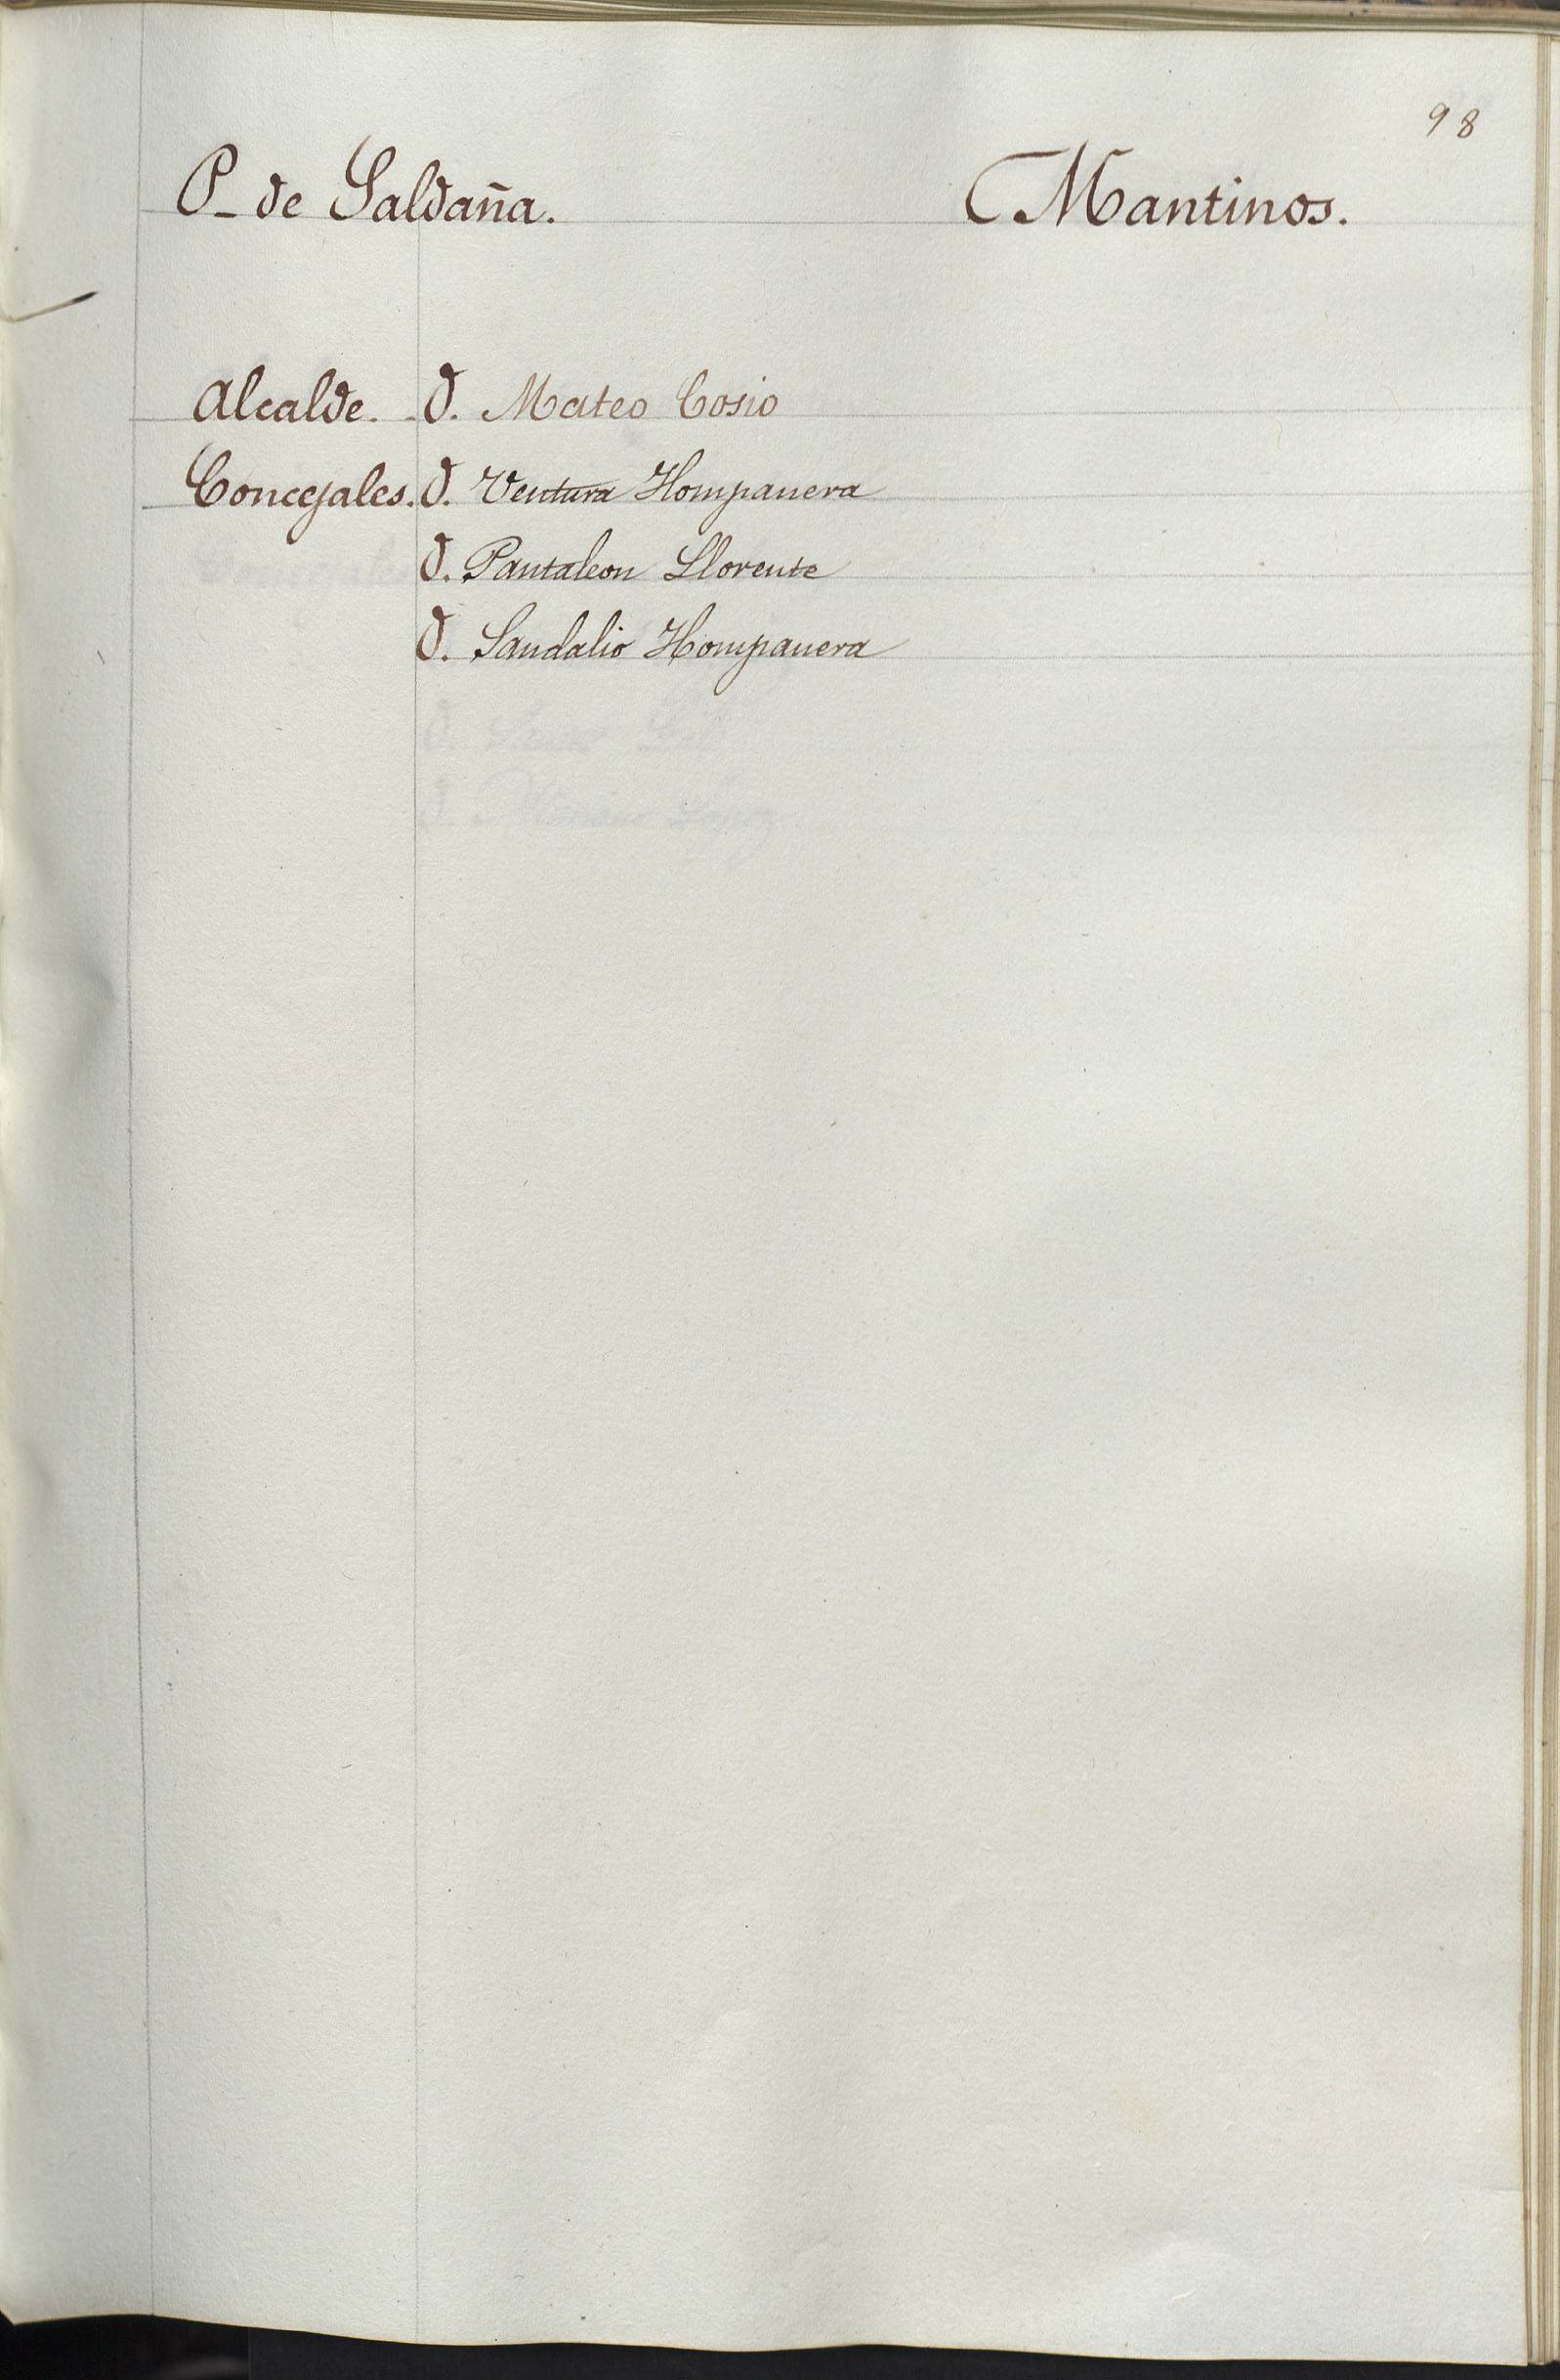 98
P_ de Saldaña. Mantinos.
Alcalde. D. Mateo Cosio
Concejales. D. Ventura Hompanera
D. Pantaleon Llorente
D. Sandalio Hompanera